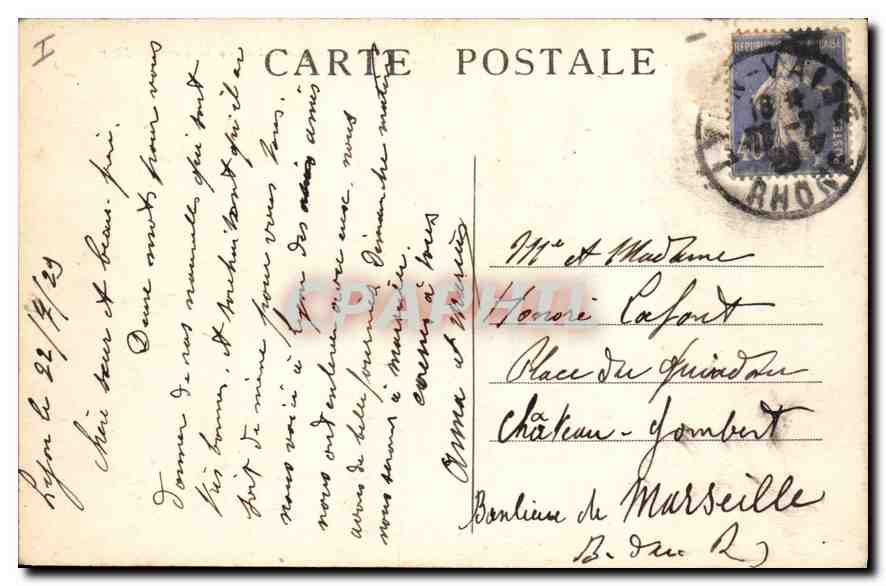 I
CARTE POSTALE
Lyon le 22/7/29
Chère sœur et beau-frère
Deux mots pour vous
donner de nos nouvelles qui sont
très bonnes, et souhaitons qu'il en
soit de même pour vous tous.
nous voici à Lyon des amis
nous ont enlevé avec eux, nous
avons de belles journées Dimanche matin
nous serons à Marseille.
caresses à tous
Anna et Marius
REPUBLIQUE FRANÇAISE
40
POSTES
RHONE
Mr et Madame
Honoré Lafont
Place du
Château-Gombert
Banlieue de Marseille
B. du R
CPAPHIL